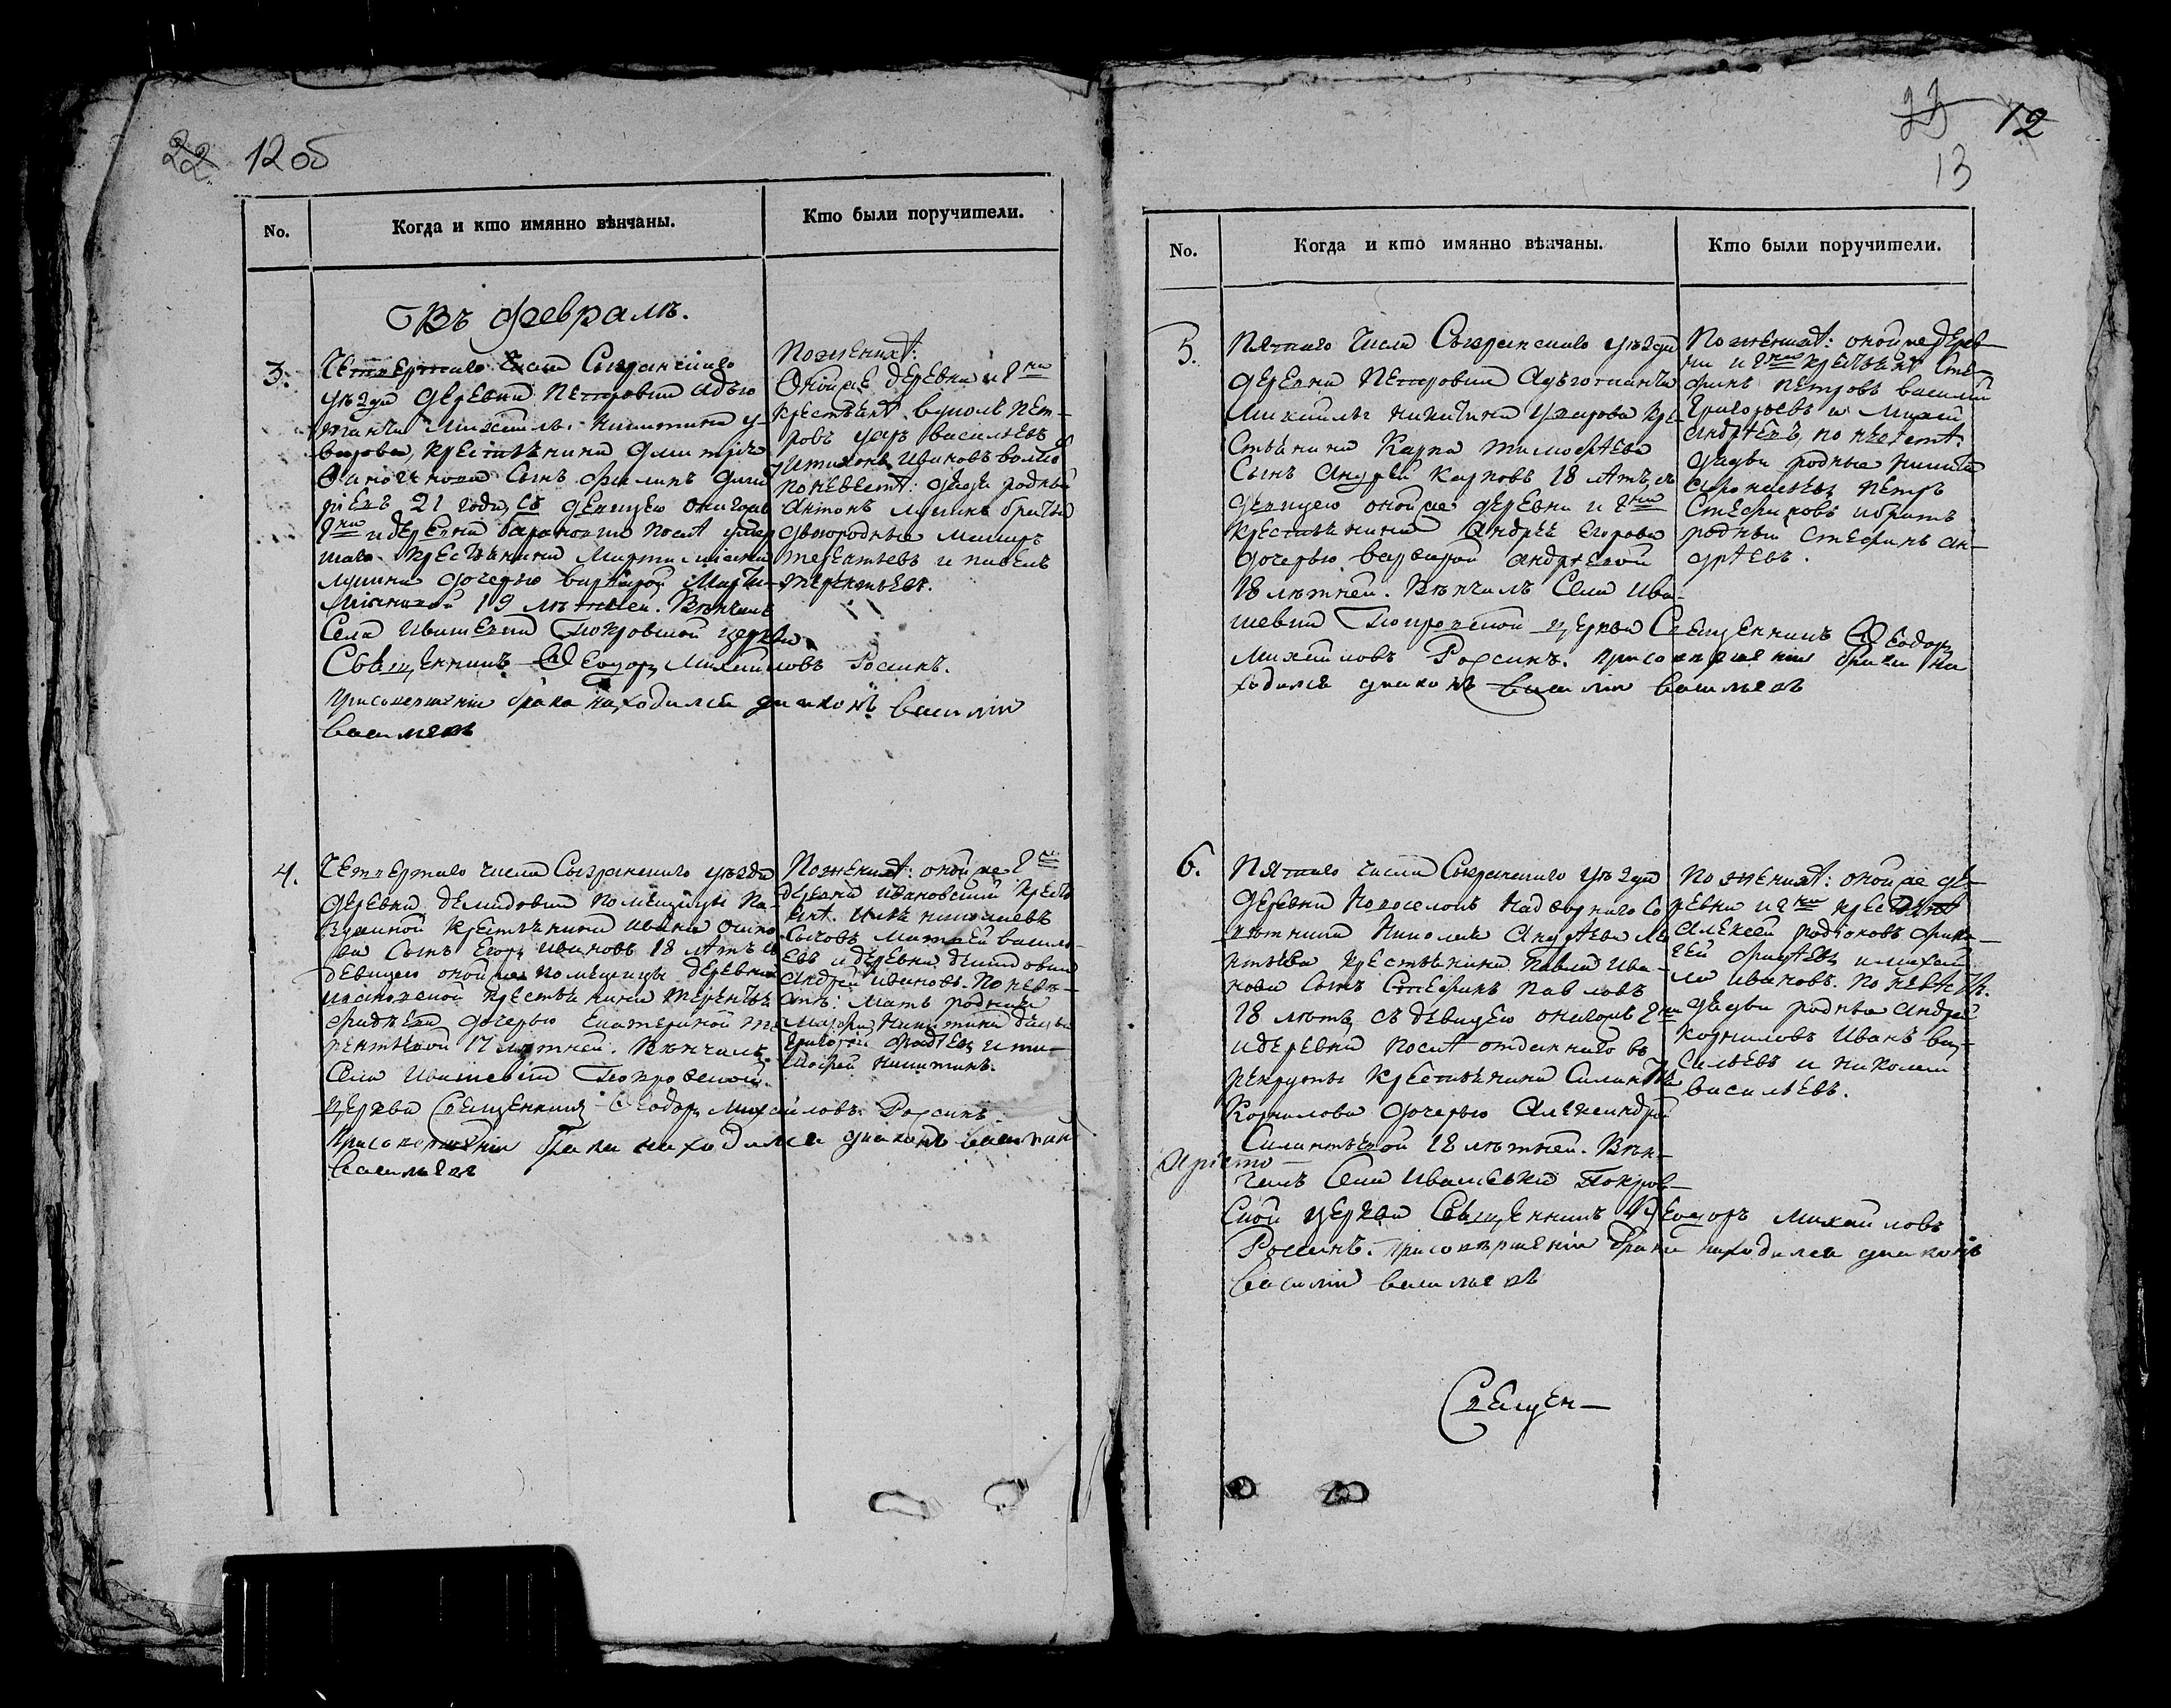 22. 12 об
No.
Когда и кто имянно вѣнчаны.
Кто были поручители.
Въ февралѣ.
3.
Четвертаго числа Сызранскаго
уѣзда деревни Петровки адъю
танта Михайла Никитина У-
варова, крестьянина Дмитрія
сынъ Филипъ Дмит
ріевъ 21 года, съ девицею онагожъ
Г-на и деревни Барановки послѣ умер
шаго крестьянина
дочерью Варварой
19 лѣтней. Вѣнчалъ
Села Ивашевки Покровской церкви
Священникъ Феодоръ Михайловъ Росинъ.
При совершеніи брака находился диаконъ Василій
Васильевъ
По женихѣ:
Оной же деревни и г-на
крестьяне Пет-
ровъ Васильевъ
Ивановъ
по невестѣ: дядя родный
Антонъ братья
двоюродные
Терентьевъ и Павелъ
Терентьевъ.
4.
Четвертаго числа Сызранскаго уѣзда
деревни Демидовки помещицы
крестьянина Ивана
ва сынъ Егоръ Ивановъ 18 лѣтъ съ
девицею оной же помещицы деревни
Ивановской крестьянина Терентья
дочерью Екатериной Те
рентьевой 17 лѣтней. Вѣнчалъ
Села Ивашевки Покровской
церкви Священникъ Феодоръ Михайловъ Россинъ.
При совершеніи брака находился диаконъ Василій
Васильевъ
По женихѣ: оной же г-жи
деревни Ивановской кресть
яне.
Матвей Василь-
евъ и деревни Демидовки
Андрей Ивановъ. По невѣ-
стѣ: мать родная
Никитина дядья
Григорей и Ти-
мофей Никитинъ.
23 12
13
No.
Когда и кто имянно вѣнчаны.
Кто были поручители.
5.
Пятаго числа Сызранскаго уѣзда
деревни Петровки Адъютанта
Михайлы Никитина Уварова кре
стьянина Карпа Тимофѣева
сынъ Андрей Карповъ 18 лѣтъ, съ
девицею оной же деревни и г-на
крестьянина Андрея Егорова
дочерью Варварой Андрѣевой
18 лѣтней. Вѣнчалъ Села Ива-
шевки Покровской церкви Священникъ Феодоръ
Михайловъ Россинъ. При совершеніи брака на
ходился диаконъ Василій Васильевъ
По женихѣ: оной же дерев-
ни и г-на крестьяне Сте-
фанъ Петровъ Василий
Григорьевъ и
Андрѣевъ, по невестѣ.
дядья родные Никита
Петръ
Стефановъ и братъ
родный Стефанъ Ан-
дрѣевъ.
6.
Пятаго числа Сызранскаго уѣзда
деревни Новоселокъ Надворнаго Со
вѣтника Николая Андрѣева Ле
онтьева крестьянина Павла Ива-
нова сынъ Стефанъ Павловъ
18 лѣтъ, съ девицею онагожъ г-на
и деревни послѣ отданнаго въ
рекруты крестьянина Силантья
Корнилова дочерью Александрой
Силантьевой 18 лѣтней. Вѣн-
чалъ Села Ивашевки Покров-
ской церкви Священникъ Феодоръ Михайловъ
Россинъ. При совершеніи брака находился диаконъ
Василій Васильевъ
По женихѣ: оной же де-
ревни и г-на крестьяне
Алексей Родіоновъ
и Михай
ла Ивановъ. По невѣстѣ.
дядья родные Андрей
Корниловъ Иванъ Ва-
сильевъ и Николай
Васильевъ.
Священ-